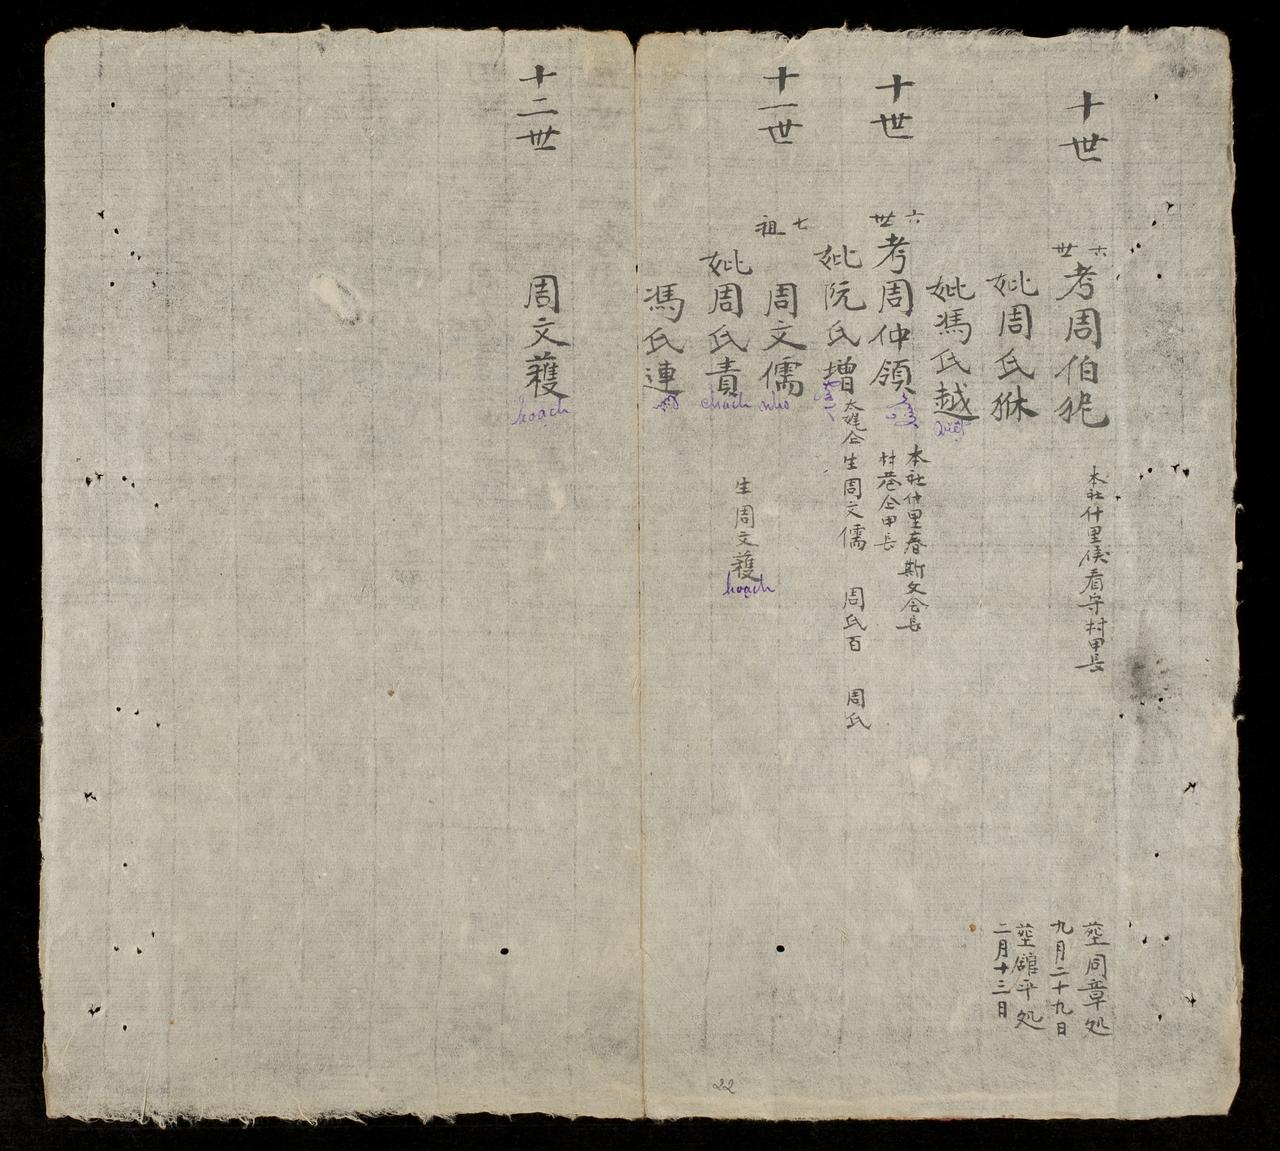 十世
六世
考周伯狔
本社什里侯看守村甲長
塟同章処
九月二十九日
妣周氏猍
塟館平処
二月十三日
妣馮氏越
việt
十世
六世
考周仲領
本社什里春斯文会長
村巷仝甲長
妣阮氏增
仝生周文儒 周氏百 周氏
十一世
七祖
周文儒
nho
妣周氏責
chach
生周文蒦
hoạch
馮氏連
十二世
周文蒦
hoạch
22